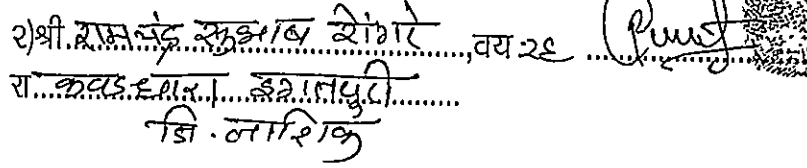 २) श्री. रामचंद्र सुभाष शेंगटे, वय २६
रा. कवडधारा इगतपुरी
जि. नाशिक